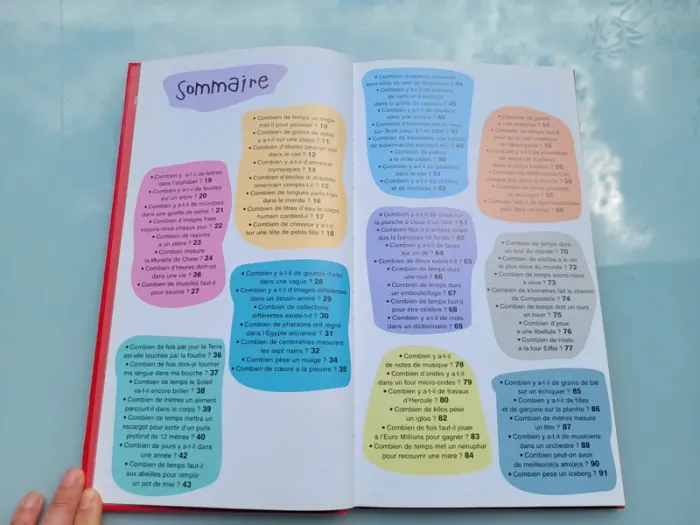 Sommaire
• Combien de temps un ongle
met-il pour pousser ? 10
• Combien de grains de sable
y a-t-il sur une plage ? 11
• Combien d'étoiles peut-on voir
dans le ciel ? 12
• Combien y a-t-il d'anneaux
olympiques ? 14
• Combien d'étoiles le drapeau
américain compte-t-il ? 15
• Combien de langues parle-t-on
dans le monde ? 16
• Combien de litres d'eau le corps
humain contient-il ? 17
• Combien de cheveux y a-t-il
sur une tête de petite fille ? 18
• Combien y a-t-il de lettres
dans l'alphabet ? 19
• Combien y a-t-il de feuilles
sur un arbre ? 20
• Combien y a-t-il de microbes
dans une goutte de salive ? 21
• Combien d'images fixes
voyons-nous chaque jour ? 22
• Combien de rayures
a un zèbre ? 23
• Combien mesure
la Muraille de Chine ? 24
• Combien d'heures dort-on
dans une vie ? 26
• Combien de muscles faut-il
pour sourire ? 27
• Combien y a-t-il de gouttes d'eau
dans une vague ? 28
• Combien y a-t-il d'images différentes
dans un dessin animé ? 29
• Combien de collections
différentes existe-t-il ? 30
• Combien de pharaons ont régné
dans l'Égypte ancienne ? 31
• Combien de centimètres mesurent
les sept nains ? 32
• Combien pèse un nuage ? 34
• Combien de cœurs a la pieuvre ? 35
• Combien de fois par jour la Terre
est-elle touchée par la foudre ? 36
• Combien de fois dois-je tourner
ma langue dans ma bouche ? 37
• Combien de temps le Soleil
va-t-il encore briller ? 38
• Combien de mètres un aliment
parcourt-il dans le corps ? 39
• Combien de temps mettra un
escargot pour sortir d'un puits
profond de 12 mètres ? 40
• Combien de jours y a-t-il dans
une année ? 42
• Combien de temps faut-il
aux abeilles pour remplir
un pot de miel ? 43
• Combien d'espèces
44
• Combien y a-t-il de
dans la grotte de Lascaux ? 45
• Combien y a-t-il de
dans une voiture ? 46
• Combien d'hommes
sur Terre jusqu'à l'an 2000 ? 47
• Combien de kilomètres une
de supermarché parcourt-elle ? 48
• Combien de pattes
a le mille-pattes ? 50
• Combien y a-t-il de planètes
dans le ciel ? 51
• Combien y a-t-il de
52
• Combien de
54
• Combien de temps faut-il
55
• Combien y a-t-il de
56
58
59
60
• Combien y a-t-il de clous sur
la planche à clous d'un fakir ? 61
• Combien faut-il d'années avant
que la banquise ne fonde ? 62
• Combien y a-t-il de faces
sur un dé ? 64
• Combien de dieux existe-t-il ? 65
• Combien de temps dure
une nuit ? 66
• Combien de temps dure
un embouteillage ? 67
• Combien de temps faut-il
pour être célèbre ? 68
• Combien y a-t-il de mots
dans un dictionnaire ? 69
• Combien de temps dure
un tour du monde ? 70
• Combien de siècles a le vin
le plus vieux du monde ? 72
• Combien de temps avons-nous
à vivre ? 73
• Combien de kilomètres fait le chemin
de Compostelle ? 74
• Combien de temps dort un ours
en hiver ? 75
• Combien d'yeux
a une libellule ? 76
• Combien de rivets
a la tour Eiffel ? 77
• Combien y a-t-il
de notes de musique ? 78
• Combien d'ondes y a-t-il
dans un four micro-ondes ? 79
• Combien y a-t-il de travaux
d'Hercule ? 80
• Combien de kilos pèse
un igloo ? 82
• Combien de fois faut-il jouer
à l'Euro Millions pour gagner ? 83
• Combien de temps met un nénuphar
pour recouvrir une mare ? 84
• Combien y a-t-il de grains de blé
sur un échiquier ? 85
• Combien y a-t-il de filles
et de garçons sur la planète ? 86
• Combien de mètres mesure
un film ? 87
• Combien y a-t-il de musiciens
dans un orchestre ? 88
• Combien peut-on avoir
de meilleur(e)s ami(e)s ? 90
• Combien pèse un iceberg ? 91